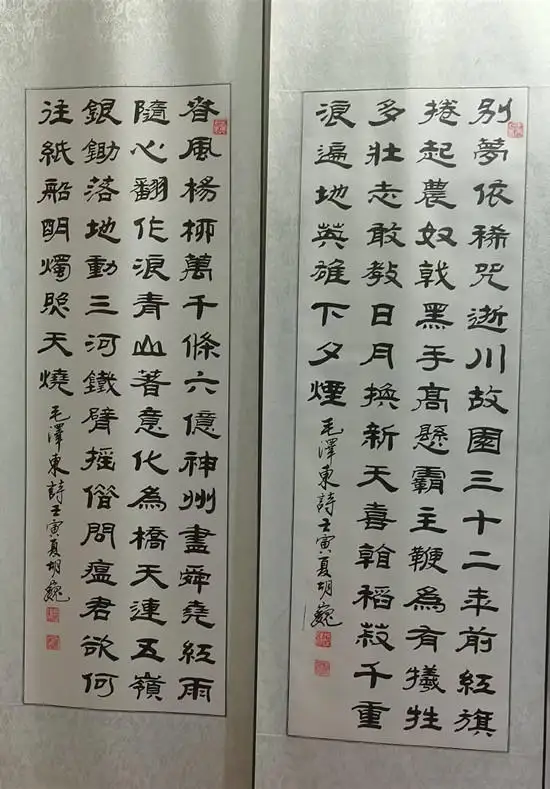 别夢依稀咒逝川故園三十二年前紅旗
捲起農奴戟黑手高懸霸主鞭為有犧牲
多壯志敢教日月換新天喜看稻菽千重
浪遍地英雄下夕煙
毛澤東詩壬寅夏胡巍
春風楊柳萬千條六億神州盡舜堯紅雨
隨心翻作浪青山著意化為橋天連五嶺
銀鋤落地動三河鐵臂搖借問瘟君欲何
往紙船明燭照天燒
毛澤東詩壬寅夏胡巍